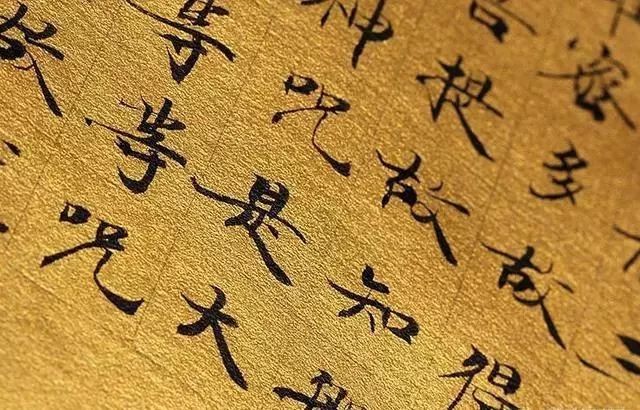 密多故得
提故知般
神咒是大
等等咒